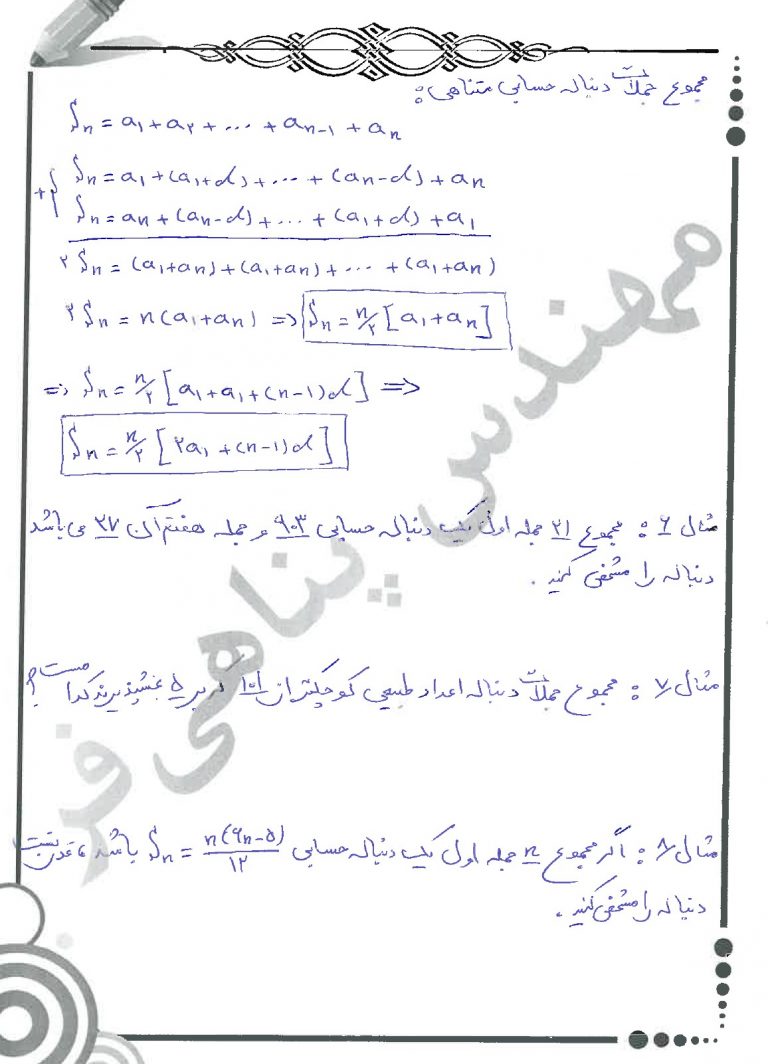 مجموع جملات دنباله حسابی متناهی:
Sn = a1 + a2 + ... + an-1 + an
+{ Sn = a1 + (a1+d) + ... + (an-d) + an
Sn = an + (an-d) + ... + (a1+d) + a1
۲Sn = (a1+an) + (a1+an) + ... + (a1+an)
۲Sn = n(a1+an) => Sn = n/۲ [a1+an]
=> Sn = n/۲ [a1+a1+(n-1)d] =>
Sn = n/۲ [۲a1+(n-1)d]
مثال ۶: مجموع ۲۱ جمله اول یک دنباله حسابی ۹۰۳ و جمله هفتم آن ۲۷ می باشد
دنباله را مشخص کنید.
مثال ۷: مجموع جملات دنباله اعداد طبیعی کوچکتر از ۱۰۱ که بر ۵ بخشپذیرند کدام است؟
مثال ۸: اگر مجموع n جمله اول یک دنباله حسابی Sn = n(۹n-۵)/۱۲ باشد، قدر نسبت
دنباله را مشخص کنید.
مهندس پناهی فر